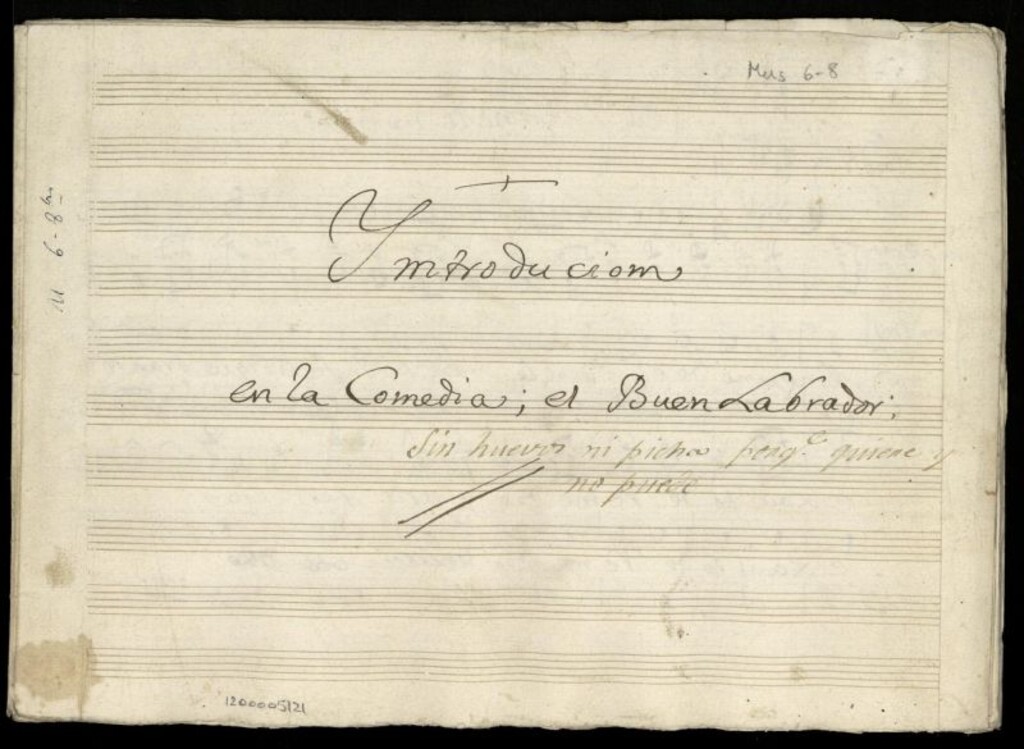 Mus 6-8
M 6-8 bis
Yntroducion
en la Comedia; el Buen Labrador;
Sin huevos ni picha porq.e quiere y
no puede
1200005121